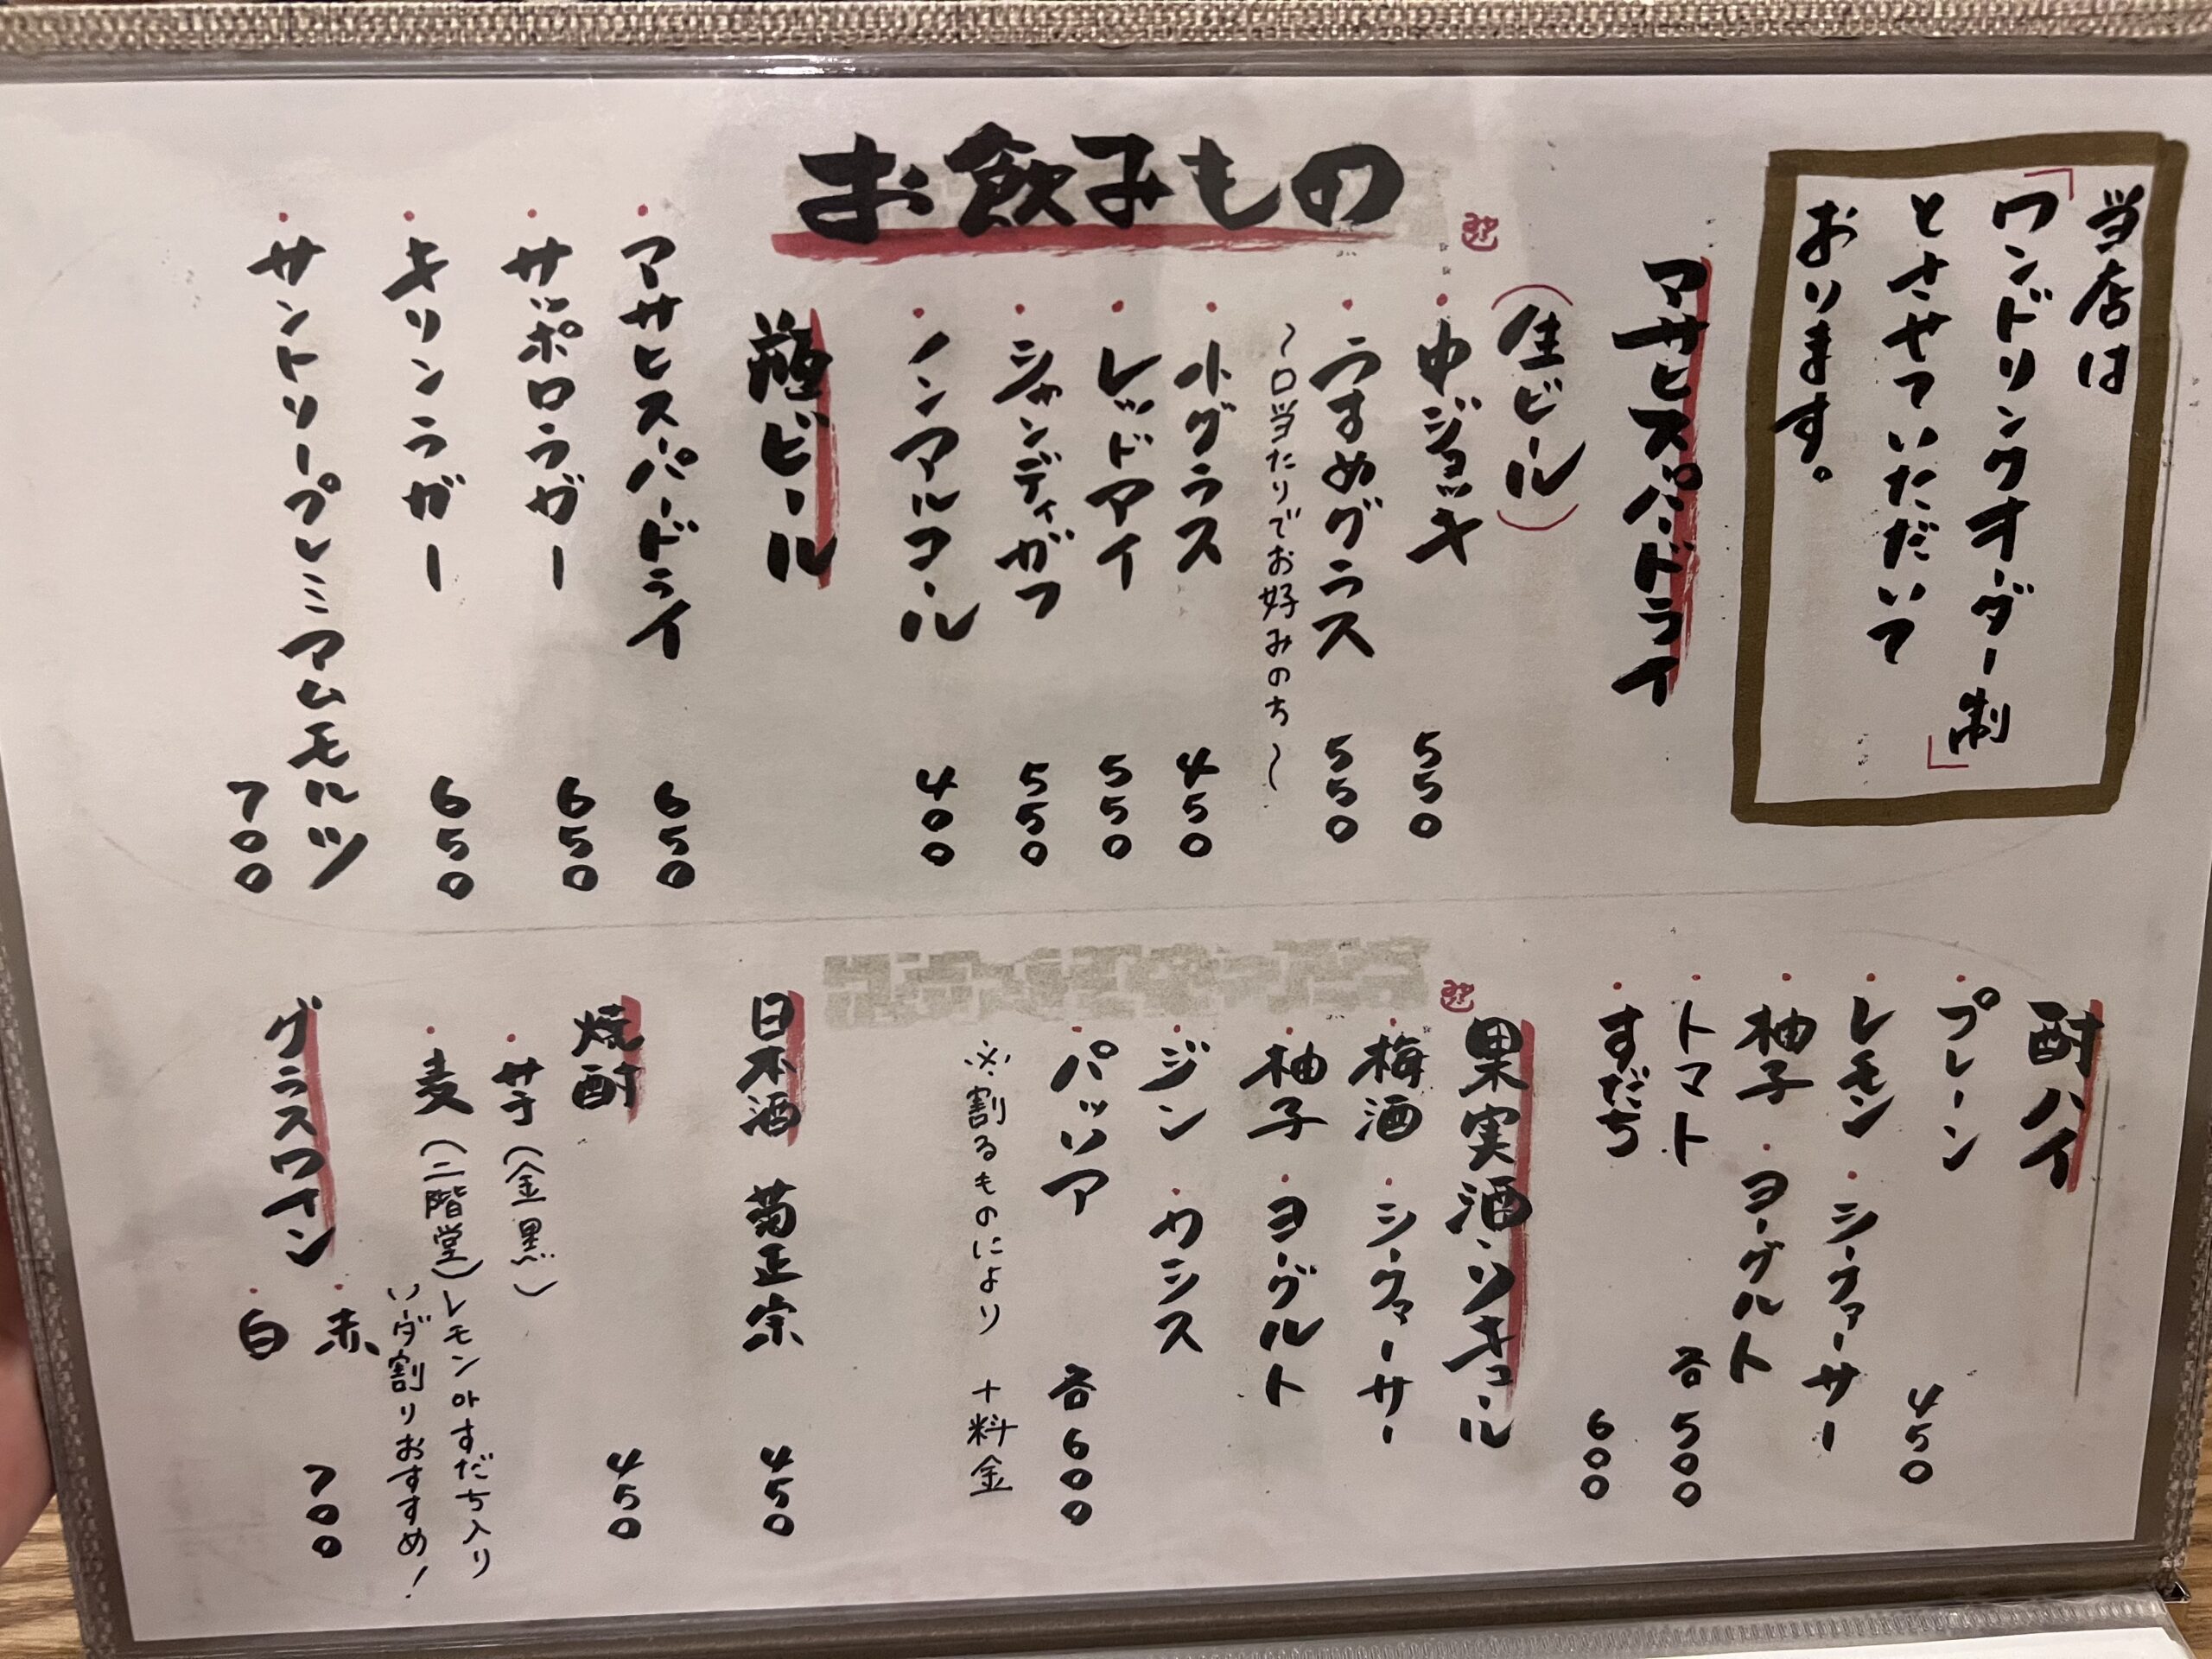 お飲みもの
当店は
「ワンドリンクオーダー制」
とさせていただいて
おります。
アサヒスーパードライ
(生ビール)
・中ジョッキ 550
・うすめグラス 550
～口当たりでお好みのち～
・小グラス 450
・レッドアイ 550
・シャンディガフ 550
・ノンアルコール 400
瓶ビール
・アサヒスーパードライ 650
・サッポロラガー 650
・キリンラガー 650
・サントリープレミアムモルツ 700
酎ハイ
・プレーン 450
・レモン・シークァーサー
・柚子・ヨーグルト
・トマト 各500
・すだち 600
果実酒・リキュール
・梅酒・シークァーサー
・柚子・ヨーグルト
・ジン・カシス
・パッソア 各600
※割るものにより+料金
日本酒 菊正宗 450
焼酎 450
・芋(金黒)
・麦(二階堂)レモンorすだち入り
ソーダ割りおすすめ!
グラスワイン・赤 700
・白